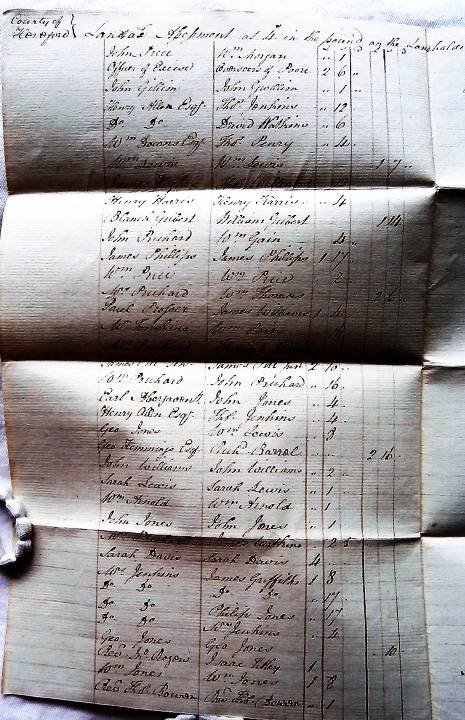 County of
Hereford } Landtax Assessment as 4s. in the pound on the Landholders
John Price Wm. Morgan " 1 "
Office of Excise Overseers of Poore 2 6 "
John Gillim John Gwillim " 1 "
Henry Allen Esqr. Thos. Jenkins " 12
Do. Do. David Watkins " 6
Wm. Downs Esqr. Thos. Penry " 4
Wm. Lewis Wm. Lewis 1 7
Henry Harris Henry Harris " 4
Blanch Gilbert William Gilbert 1 14
John Prichard Wm. Gain 4
James Phillips James Phillips 1 17
Wm. Price Wm. Price " 2
Mrs. Prichard Wm. Thomas 2 6
Paul Prosser James Williams 1 4
Mr. Tomkins Wm. 16
James James 2 16
Wm. Prichard John Prichard " 16
Earl Abergavenny John Jones " 4
Henry Allen Esqr. Thos. Jenkins " 4
Geo Jones Wm. Lewis " 8
Geo Hemmings Esqr. Richd. Barrol 2 16
John Williams John Williams " 2
Sarah Lewis Sarah Lewis " 1
Wm. Arnold Wm. Arnold " 1
John Jones John Jones " 1
Watkins 2 5
Sarah Davis Sarah Davis 4
Mrs. Jenkins James Griffiths 1 8
Do. Do. Do. Do. " 17
Do. Do. Philip Jones " 17
Do. Do. Jenkins " 4
Geo. Jones Geo Jones 10
Revd. Jno. Rogers Isaac 1
Wm. Jones Wm. Jones 1 8
Revd. Thos. Bowen Revd. Thos. Bowen " 1